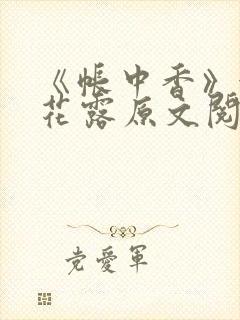 《帐中香》
花露原文阅
党爱军